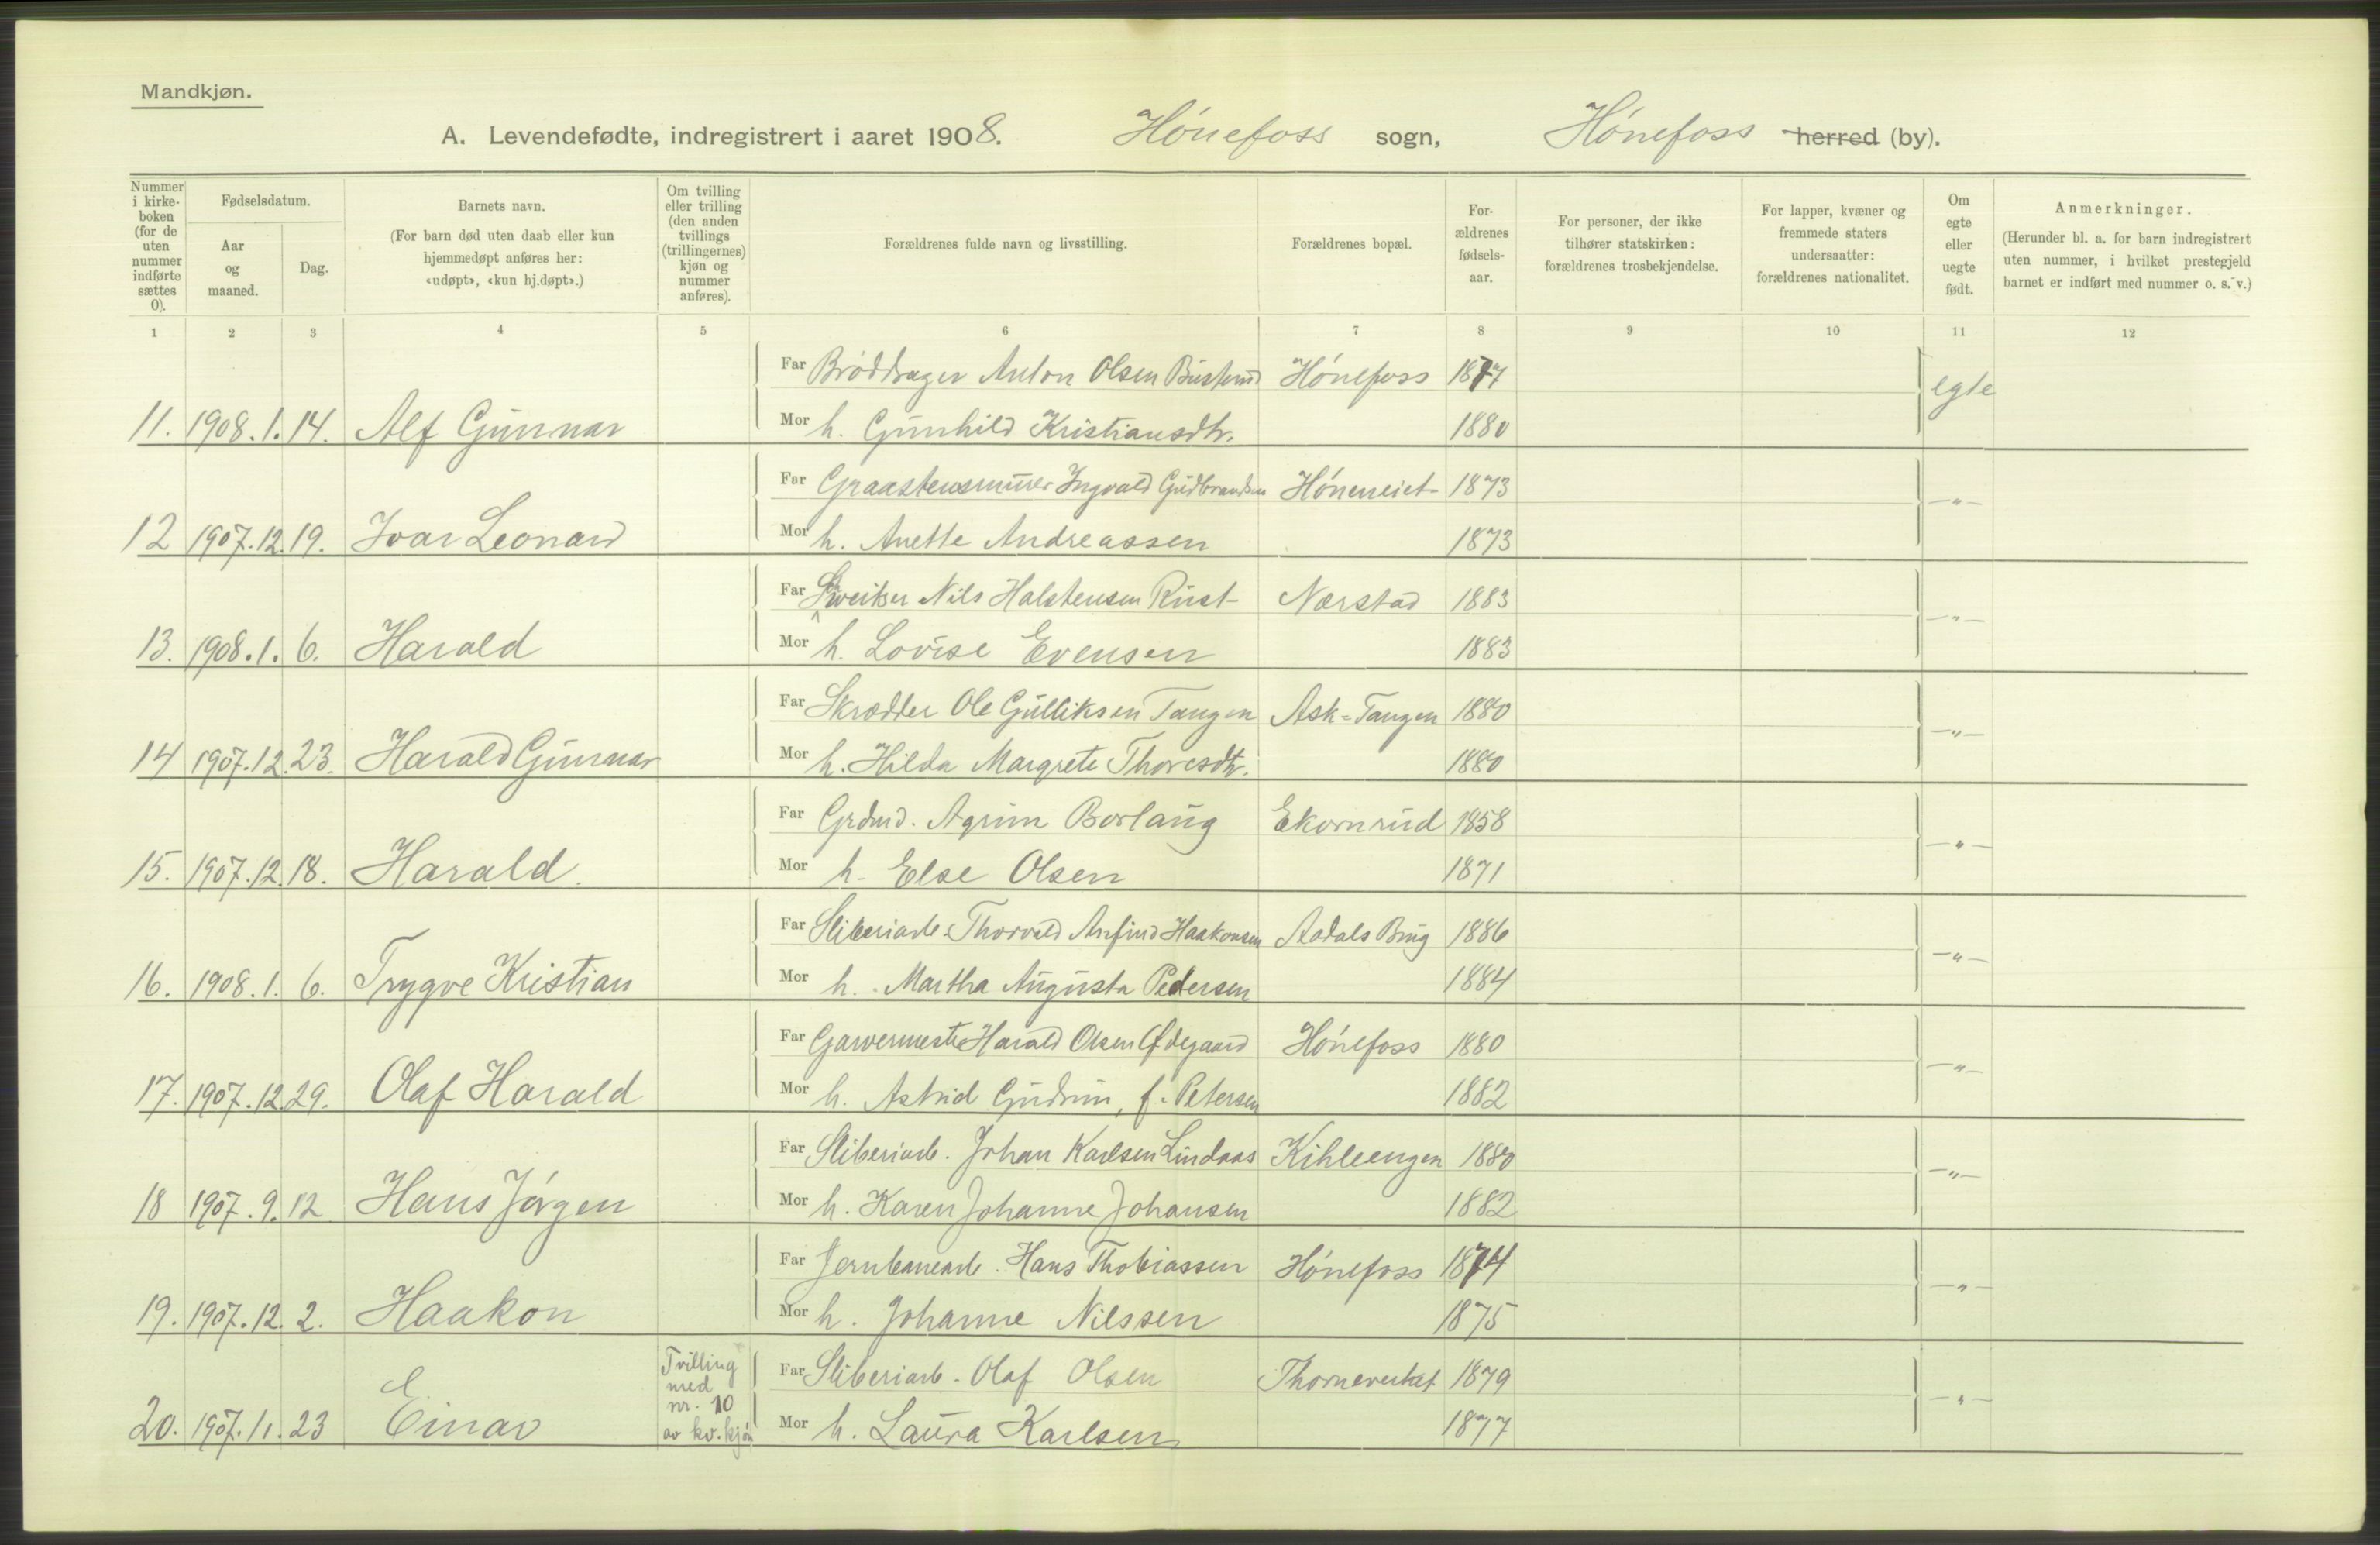 Mandkjøn.
A. Levendefødte, indregistrert i aaret 1908. Hónefoss sogn, Hónefoss herred (by).
Nummer i kirke- boken (for de uten nummer indførte sættes 0).
Fødselsdatum.
Aar og maaned.
Dag.
Barnets navn.
(For barn død uten daab eller kun hjemmedøpt anføres her: «udøpt», «kun hj.døpt».)
Om tvilling eller trilling (den anden tvillings (trillingernes) kjøn og nummer anføres).
Forældrenes fulde navn og livsstilling.
Forældrenes bopæl.
For- ældrenes fødsels- aar.
For personer, der ikke tilhører statskirken: forældrenes trosbekjendelse.
For lapper, kvæner og fremmede staters undersaatter: forældrenes nationalitet.
Om egte eller uegte født.
Anmerkninger.
(Herunder bl. a. for barn indregistrert uten nummer, i hvilket prestegjeld barnet er indført med nummer o. s. v.)
1 2 3 4 5 6 7 8 9 10 11 12
Far Brøddrager Anton Olsen Busterud Hónefoss 1877 egte
11. 1908. 1. 14. Alf Gunnar Mor h. Gunhild Kristiansdtr. 1880
Far Ingvald Gudbrandsen Hóneneiet 1873 -"-
12 1907. 12. 19. Ivar Leonard Mor h. Anette Andreassen 1873
Far Sveitser Nils Halstensen Rust Nærstad 1883 -"-
13. 1908. 1. 6. Harald Mor h. Lovise Evensen 1883
Far Skrædder Ole Gulliksen Tangen Ask=Tangen 1880 -"-
14 1907. 12. 23. Harald Gunnar Mor h. Hilda Margrete Thoresdtr. 1880
Far Grdmd. Agrim Borlaug Ekornrud 1858 -"-
15. 1907. 12. 18. Harald. Mor h. Else Olsen 1871
Far Sliberiarb. Thorvald Anfind Haakonsen Aadals Brug 1886 -"-
16. 1908. 1. 6. Trygve Kristian Mor h. Martha Augusta Pedersen 1884
Far Garvermester Harald Olsen Ødegaard Hónefoss 1880 -"-
17. 1907. 12. 29. Olaf Harald Mor h. Astrid Gudrun, f. Petersen 1882
Far Sliberiarb. Johan Karlsen Lindaas Kihleengen 1880 -"-
18 1907. 9. 12 Hans Jórgen Mor h. Karen Johanne Johansen 1882
Far Jernbanearb. Hans Thobiassen Hónefoss 1874 -"-
19. 1907. 12. 2. Haakon Mor h. Johanne Nilssen 1875
Tvilling med nr. 10 av kv. kjón
Far Sliberiarb. Olaf Olsen 1879 -"-
20. 1907. 11. 23 Einar Mor h. Laura Karlsen 1877